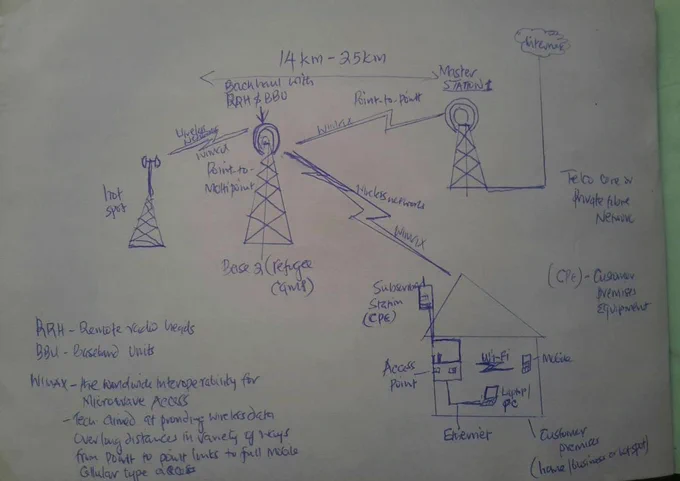 14km - 25km
Internet
Backhaul with
RRH & BBU
Master
STATION 1
Point-to-point
WIMAX
Wireless
WIMAX
Point-to-
Multipoint
hot
spot
Wireless network
WIMAX
Telco Core or
Private fibre
Network
Base 2 (refugee
Subscriber
Station
(CPE)
(CPE) - Customer
Premises
Equipment
RRH - Remote radio heads
BBU - Baseband Units
Wi-Fi
Mobile
Access
Point
Laptop/
PC
Ethernet
Customer
premises
(home/business or hotspot)
WIMAX - Are worldwide Interoperability for
Microwave Access
- Tech aimed at providing wireless data
Over long distances in variety of ways
from Point to point links to full Mobile
Cellular type access